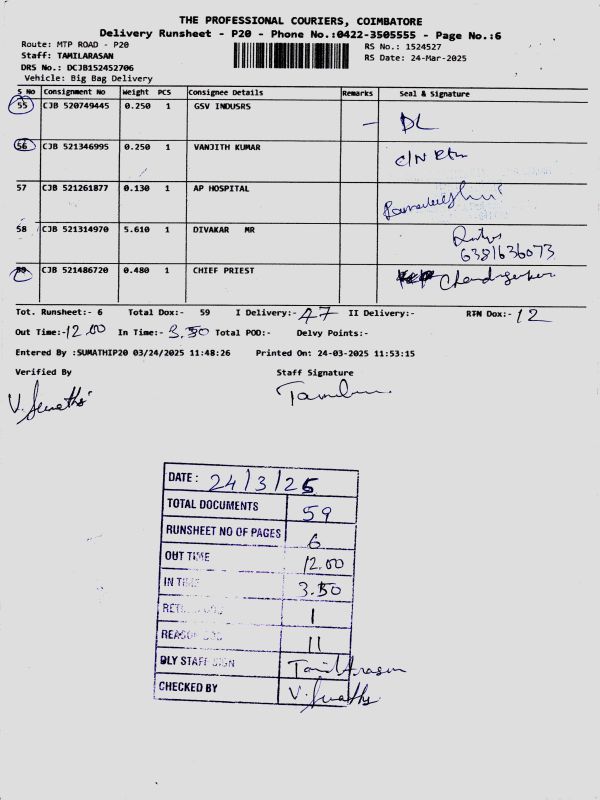 THE PROFESSIONAL COURIERS, COIMBATORE
Delivery Runsheet - P20 - Phone No.:0422-3505555 - Page No.:6
Route: MTP ROAD - P20 RS No.: 1524527
Staff: TAMILARASAN RS Date: 24-Mar-2025
DRS No.: DCJB152452706
Vehicle: Big Bag Delivery
S No Consignment No Weight PCS Consignee Details Remarks Seal & Signature
55 CJB 520749445 0.250 1 GSV INDUSRS - DL
56 CJB 521346995 0.250 1 VANJITH KUMAR C/N Rtn
57 CJB 521261877 0.130 1 AP HOSPITAL
58 CJB 521314970 5.610 1 DIVAKAR MR
6381636073
59 CJB 521486720 0.480 1 CHIEF PRIEST
Tot. Runsheet:- 6 Total Dox:- 59 I Delivery:- 47 II Delivery:- RTN Dox:- 12
Out Time:- 12.00 In Time:- 3.50 Total POD:- Delvy Points:-
Entered By :SUMATHIP20 03/24/2025 11:48:26 Printed On: 24-03-2025 11:53:15
Verified By Staff Signature
V. Sumathi
DATE: 24/3/25
TOTAL DOCUMENTS 59
RUNSHEET NO OF PAGES 6
OUT TIME 12.00
IN TIME 3.50
RETURN DOC 1
REASON DOC 11
DLY STAFF SIGN Tamilarasan
CHECKED BY V. Sumathi